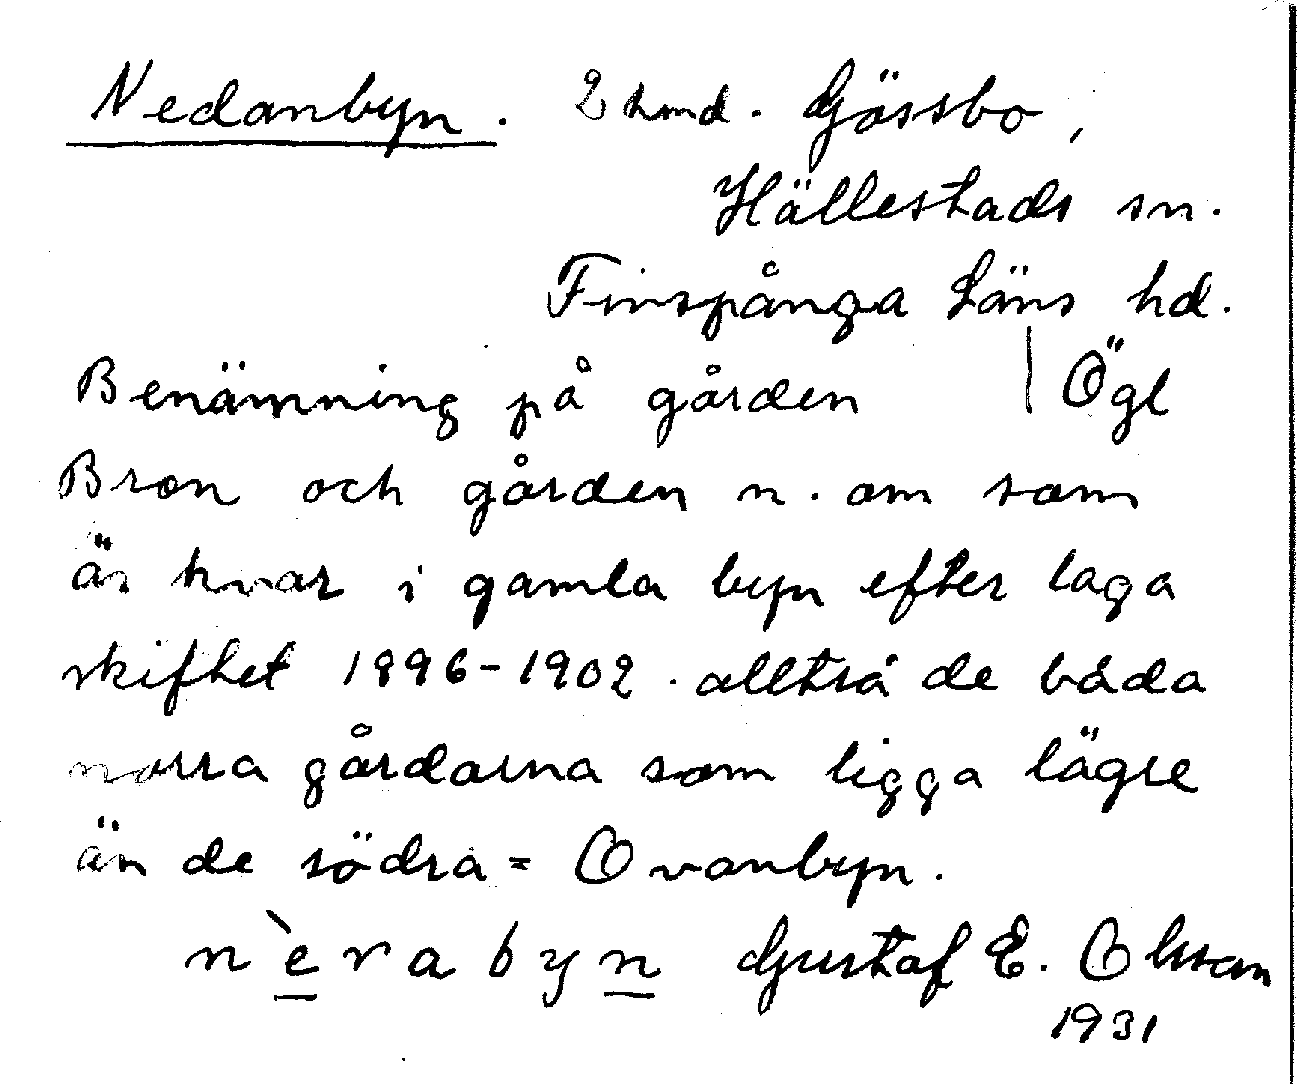 Nedanbyn. 2 hmd. Gössbo,
Hällestads sn.
Finspånga Läns hd.
Benämning på gården | Ögl
Bron och gården n. om som
är kvar i gamla byn efter laga
skiftet 1896-1902. alltså de båda
norra gårdarna som ligga lägre
än de södra = Ovanbyn.
nèrabyn Gustaf E. Olsson
1931